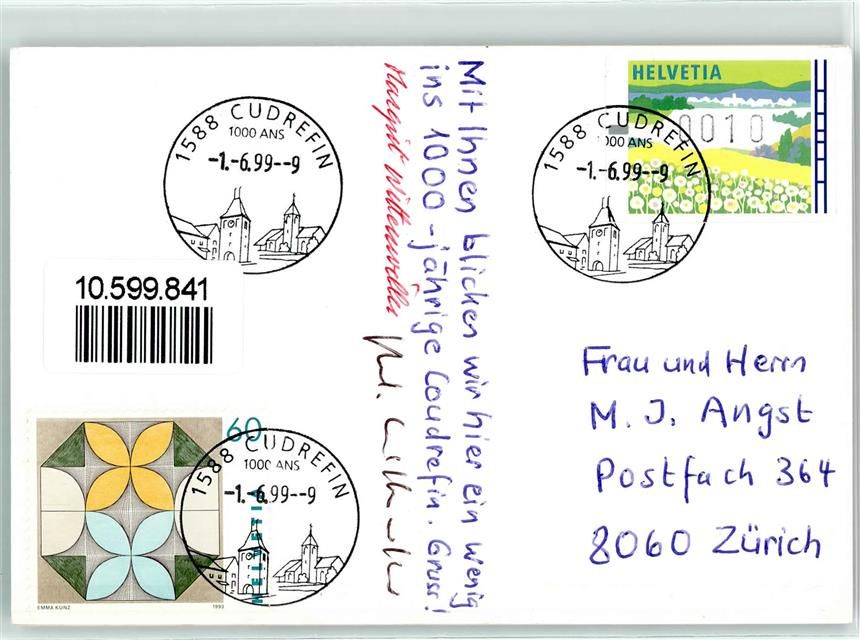 1588 CUDREFIN
1000 ANS
-1.-6.99--9
10.599.841
60
HELVETIA
EMMA KUNZ
1993
1588 CUDREFIN
1000 ANS
-1.-6.99--9
Mit Ihnen blicken wir hier ein wenig
ins 1000-jährige Coudrefin. Gruss!
Margrit
HELVETIA
0010
1588 CUDREFIN
1000 ANS
-1.-6.99--9
Frau und Herrn
M. J. Angst
Postfach 364
8060 Zürich